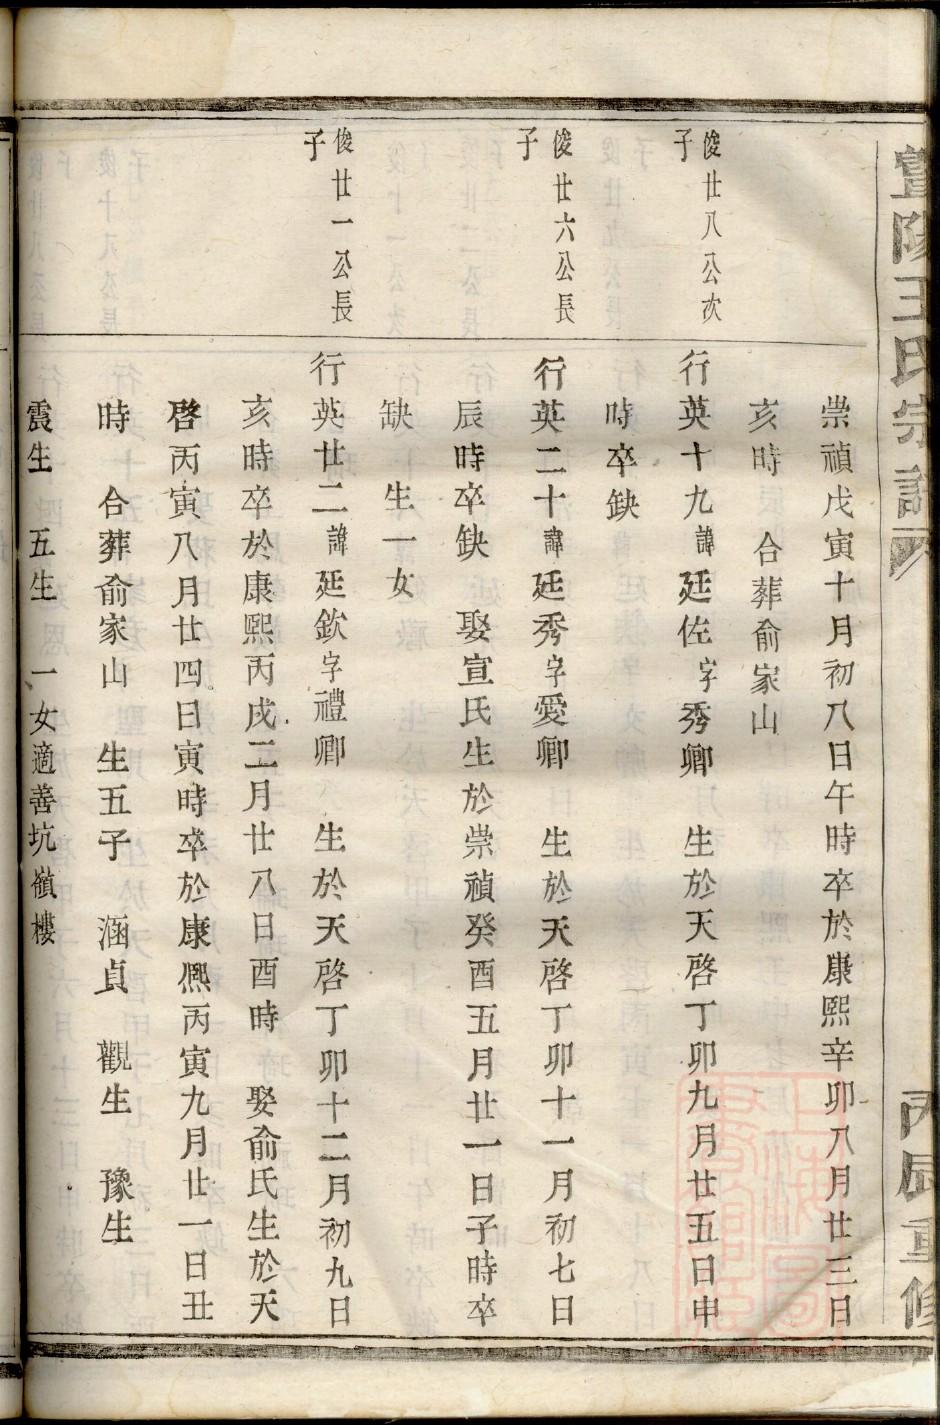 暨陽王氏宗譜
丙辰重修
崇禎戊寅十月初八日午時卒於康熙辛卯八月廿三日
亥時 合葬俞家山
俊廿八公次
子
行英十九諱廷佐字秀卿 生於天啓丁卯九月廿五日申
時卒缺
俊廿六公長
子
行英二十諱廷秀字愛卿 生於天啓丁卯十一月初七日
辰時卒缺 娶宣氏生於崇禎癸酉五月廿一日子時卒
缺 生一女
俊廿一公長
子
行英廿二諱廷欽字禮卿 生於天啓丁卯十二月初九日
亥時卒於康熙丙戌二月廿八日酉時 娶俞氏生於天
啓丙寅八月廿四日寅時卒於康熙丙寅九月廿一日丑
時 合葬俞家山 生五子 涵貞 觀生 豫生
震生 五生 一女適善坑嶺樓